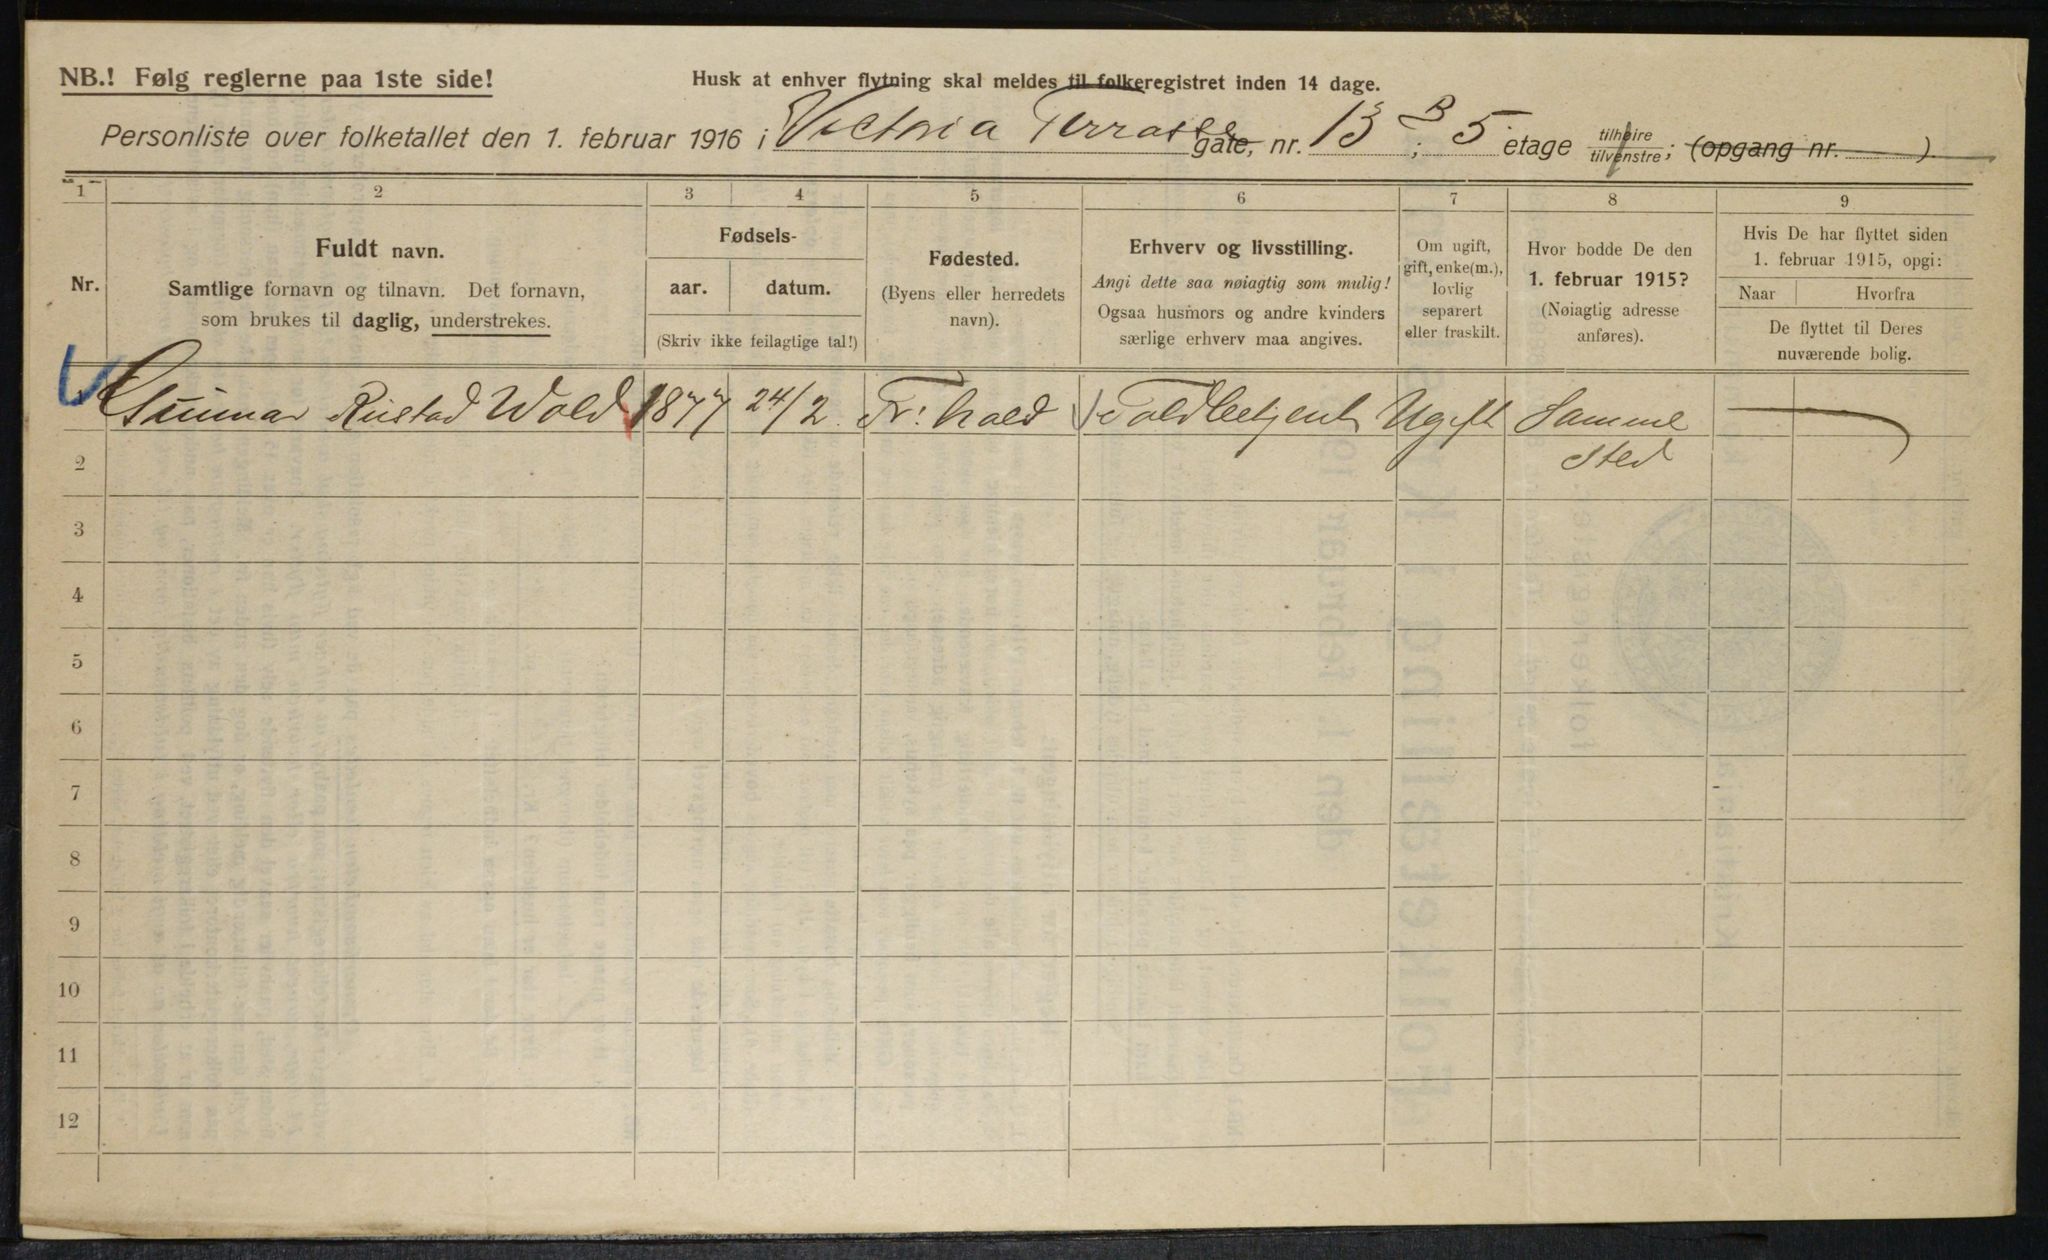 NB.! Følg reglerne paa 1ste side!
Husk at enhver flytning skal meldes til folkeregistret inden 14 dage.
Personliste over folketallet den 1. februar 1916 i Victoria Terrasse gate, nr. 13 B; 5 etage tilhøire / tilvenstre; (opgang nr. )
1 2 3 4 5 6 7 8 9
Nr.
Fuldt navn.
Samtlige fornavn og tilnavn. Det fornavn,
som brukes til daglig, understrekes.
Fødsels-
aar. datum.
(Skriv ikke feilagtige tal!)
Fødested.
(Byens eller herredets
navn).
Erhverv og livsstilling.
Angi dette saa nøiagtig som mulig!
Ogsaa husmors og andre kvinders
særlige erhverv maa angives.
Om ugift,
gift, enke(m.),
lovlig
separert
eller fraskilt.
Hvor bodde De den
1. februar 1915?
(Nøiagtig adresse
anføres).
Hvis De har flyttet siden
1. februar 1915, opgi:
Naar Hvorfra
De flyttet til Deres
nuværende bolig.
Gunnar Rustad Wold 1877 24/2 Fr: hald Toldbetjent Ugift Samme
sted
2
3
4
5
6
7
8
9
10
11
12